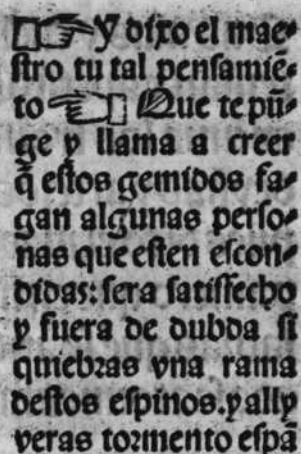 ☞ Y dixo el mae-
stro tu tal pensamiē-
to ☜ Que te pū-
ge y llama a creer
q̄ estos gemidos fa-
gan algunas perso-
nas que esten escon-
didas: sera satisfecho
y fuera de dubda si
quiebras vna rama
destos espinos. y ally
veras tormento espā